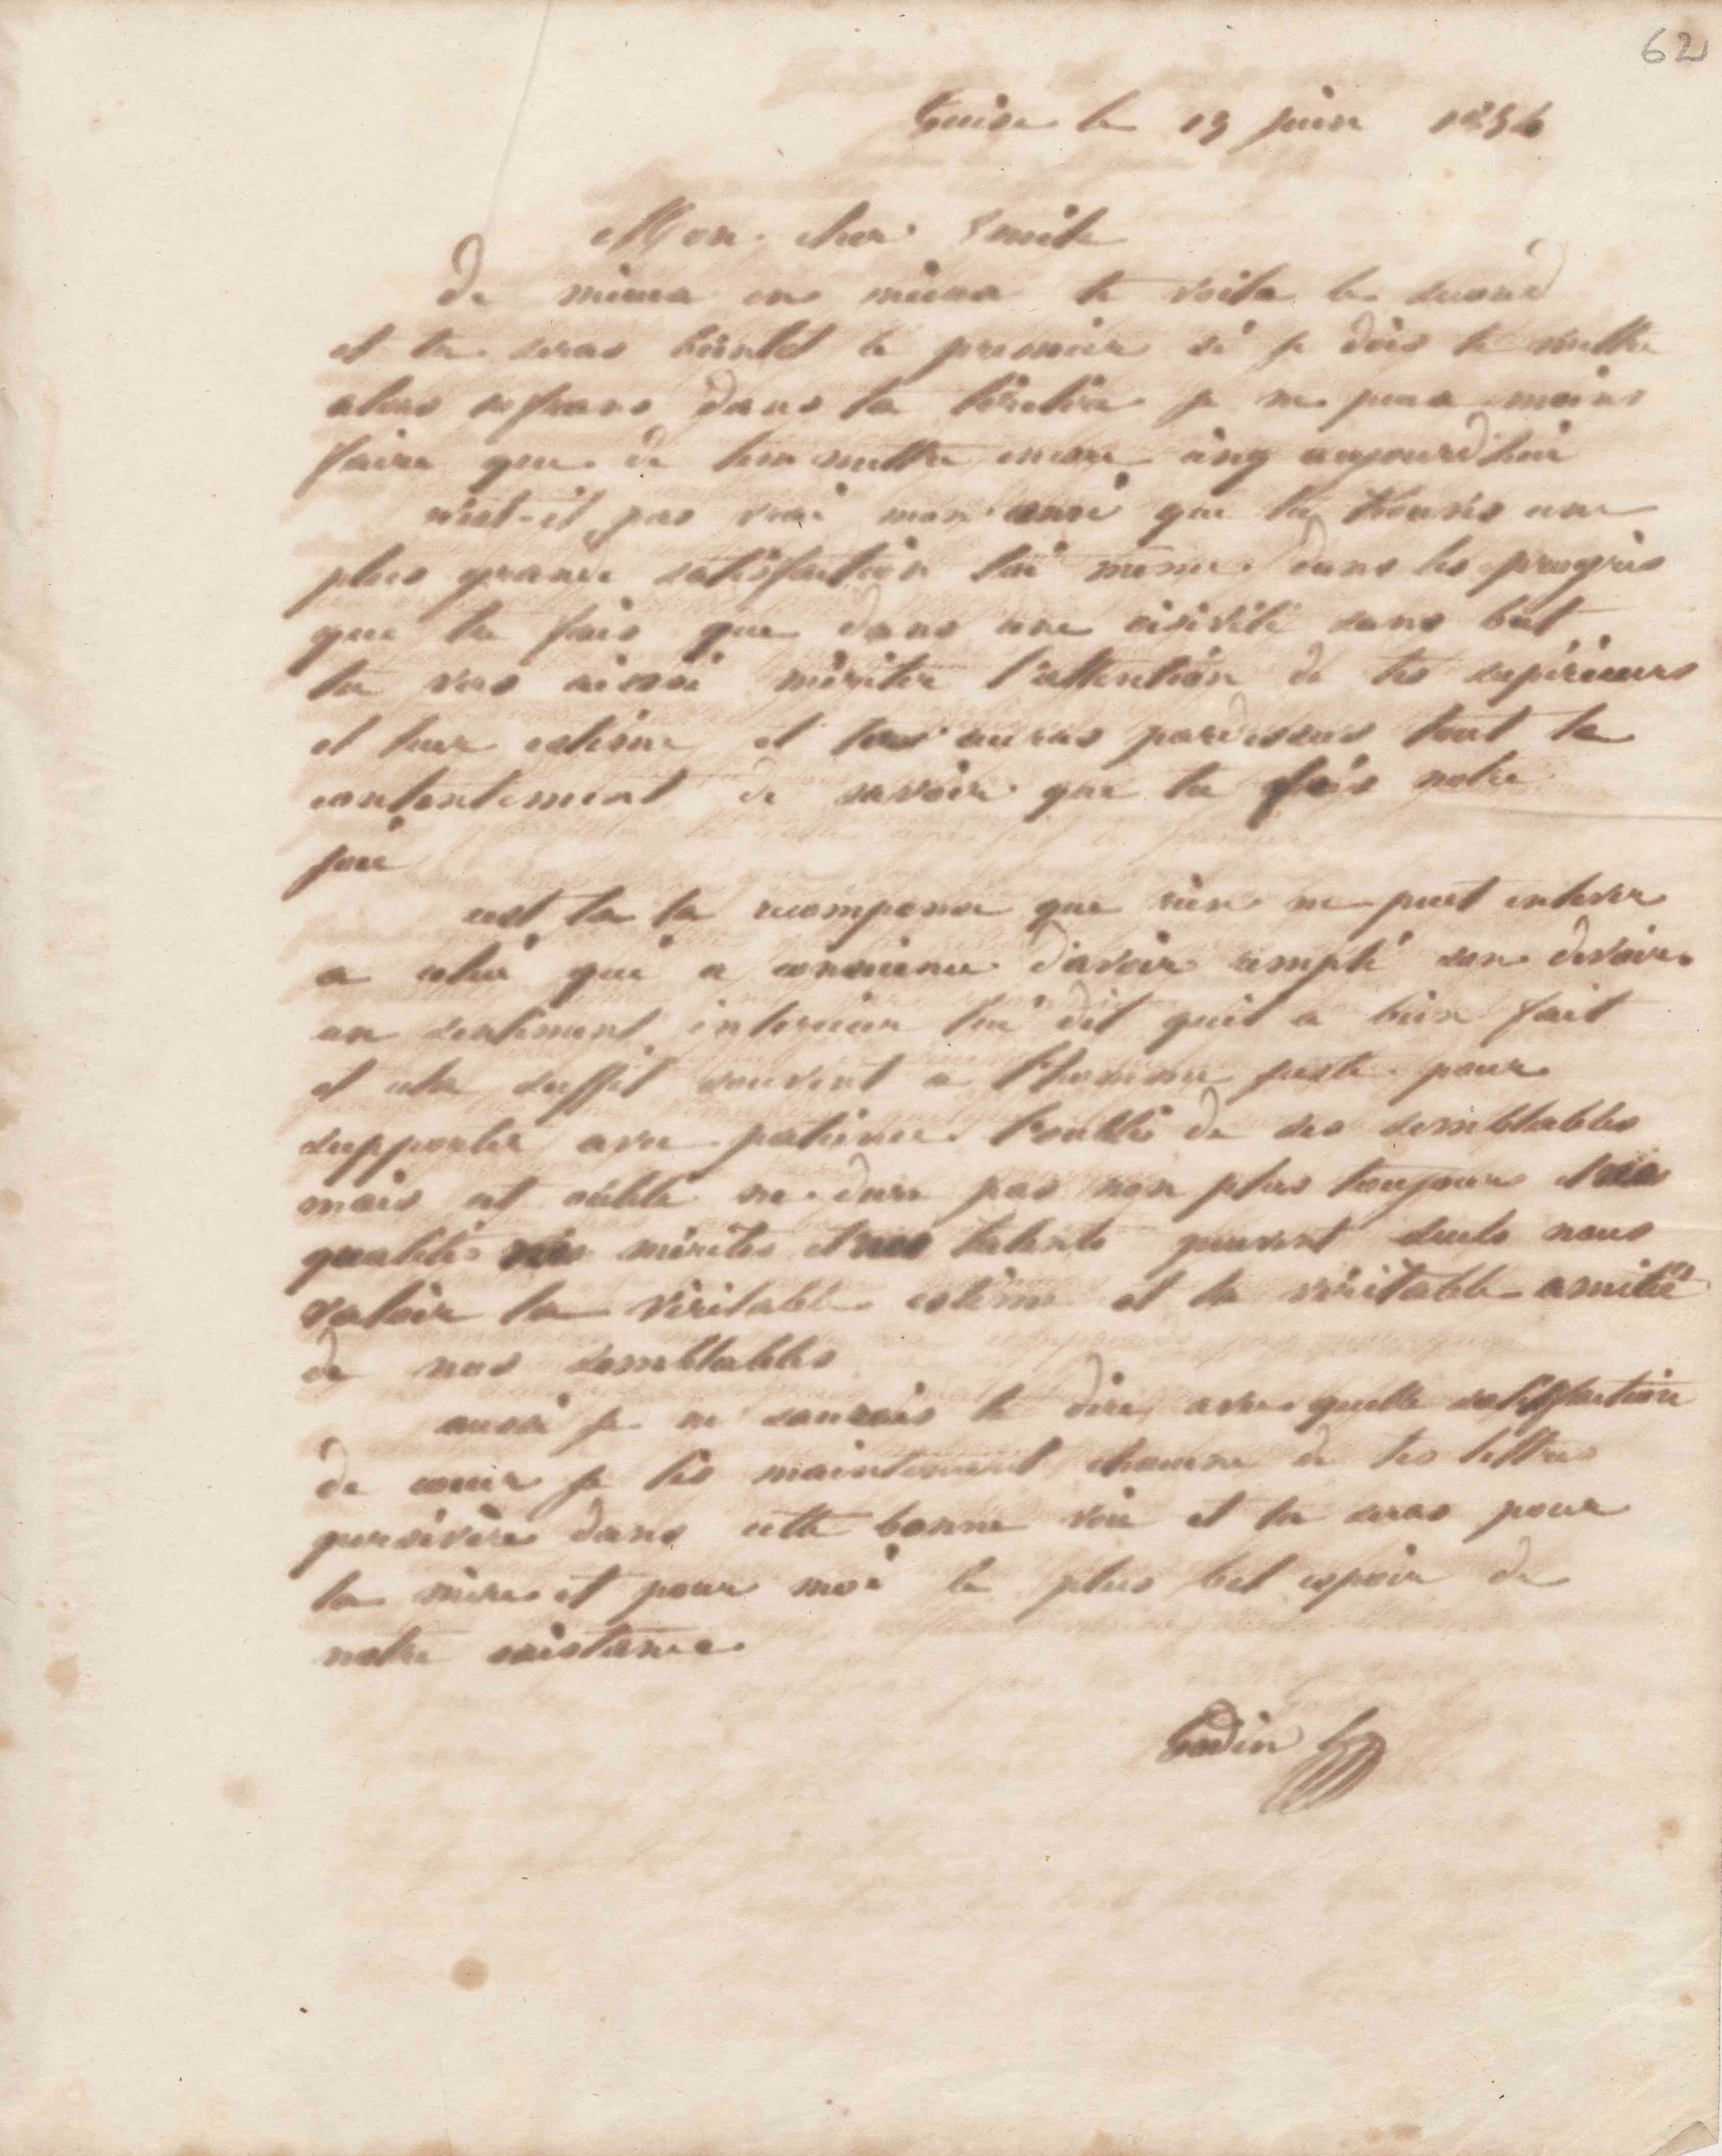 62
Guise le 13 juin 1854
Mon cher Emile
De mieux en mieux te voila le second
et tu seras bientot le premier si je dois te mettre
alors francs dans ta je ne peux moins
faire que de t'en mettre encore cinq aujourd'hui
n'est-il pas vrai mon ami que tu trouves une
plus grande satisfaction toi même dans les progrès
que tu fais que dans une oisiveté sans but
tu vas aussi mériter l'attention de tes supérieurs
et leur estime et tu auras pardessus tout le
contentement de savoir que tu fais notre
joie
cest la la recompense que rien ne peut enlever
a celui qui a conscience d'avoir rempli son devoir.
un sentiment interieur lui dit quil a bien fait
et cela suffit souvent a l'homme juste pour
supporter avec patience l'oubli de ses semblables
mais cet oubli ne dure pas non plus toujours et nos
qualités nos mérites et nos talents peuvent seuls nous
valoir la véritable estime et la véritable amitié
de nos semblables
aussi je ne saurais te dire avec quelle satisfaction
de cœur je lis maintenant chacune de tes lettres
persévère dans cette bonne voie et tu seras pour
ta mère et pour moi le plus bel espoir de
notre existance.
Godin